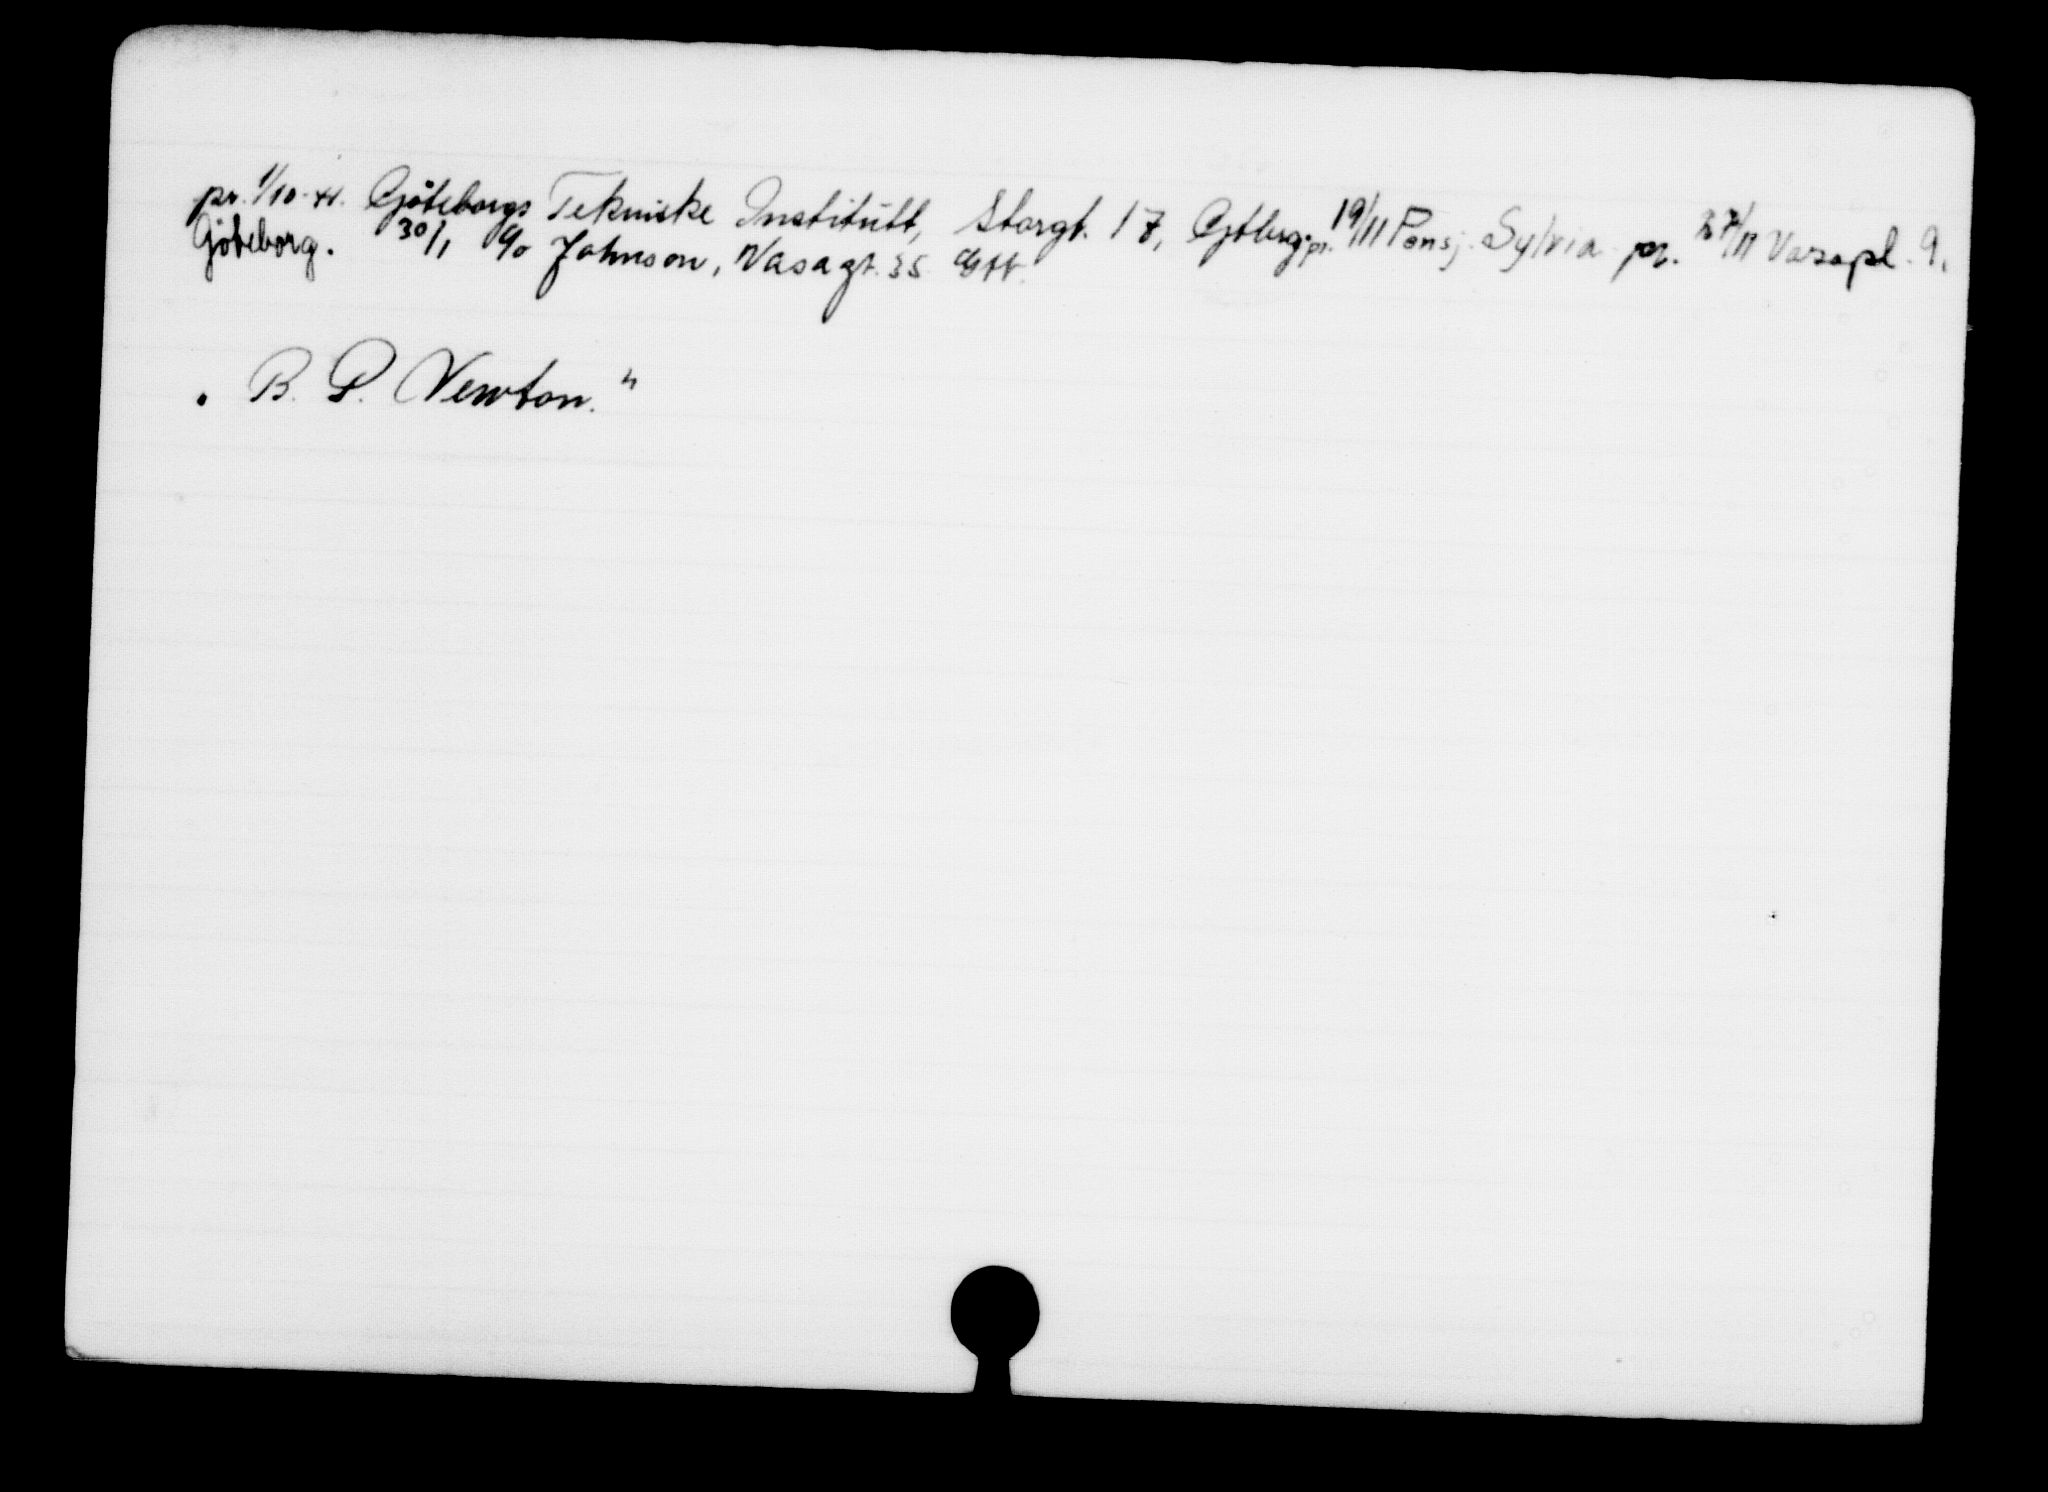 pr. 1/10-41. Göteborgs Tekniske Institutt, Storgt. 17, Gjtbrg. pr. 19/11 Pensj. Sylvia pr. 27/11 Vasapl. 9.
Göteborg. 30/1 c/o Johnson, Vasagt. 35
„ B. P. Newton."